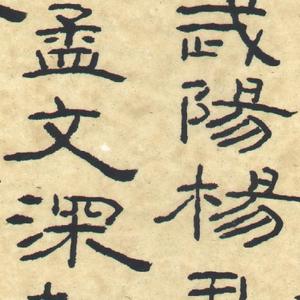 武陽楊
孟文深